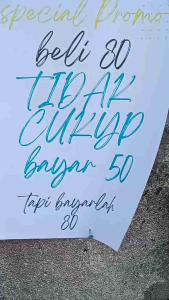 special Promo
beli 80
TIDAK
CUKUP
bayar 50
Tapi bayarlah
80